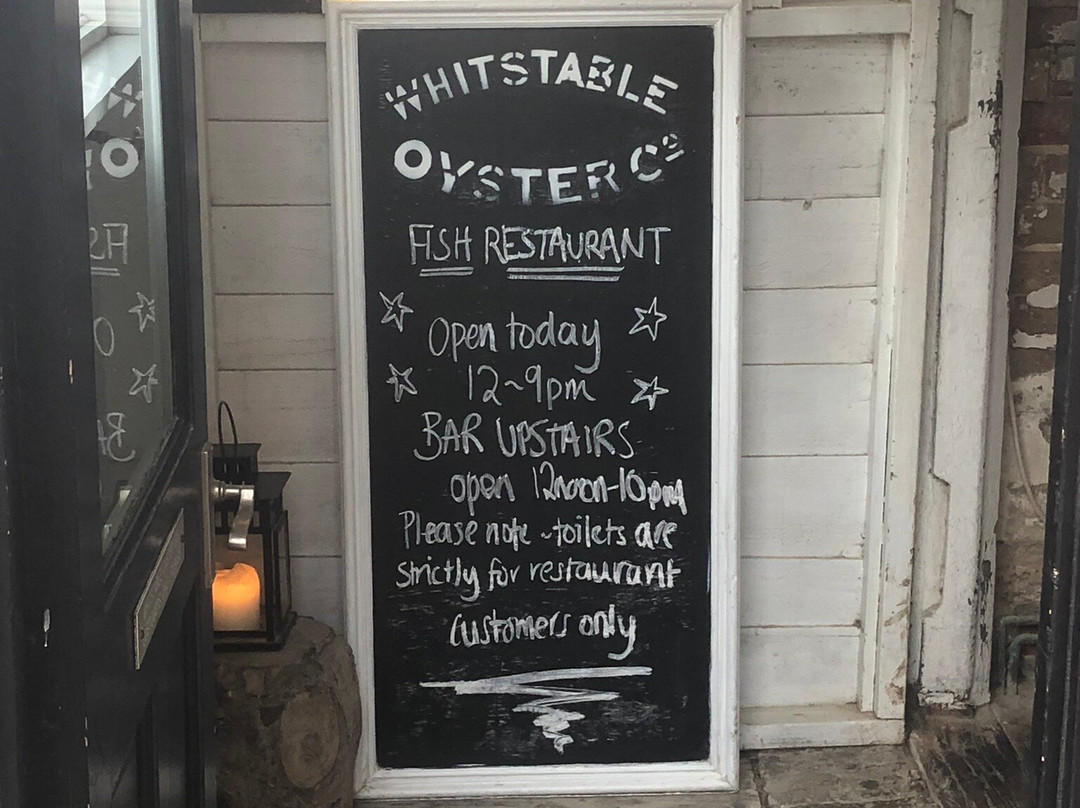 WHITSTABLE
OYSTER Cº
FISH RESTAURANT
Open today
12~9pm
BAR UPSTAIRS
open 12noon-10pm
Please note ~toilets are
strictly for restaurant
customers only